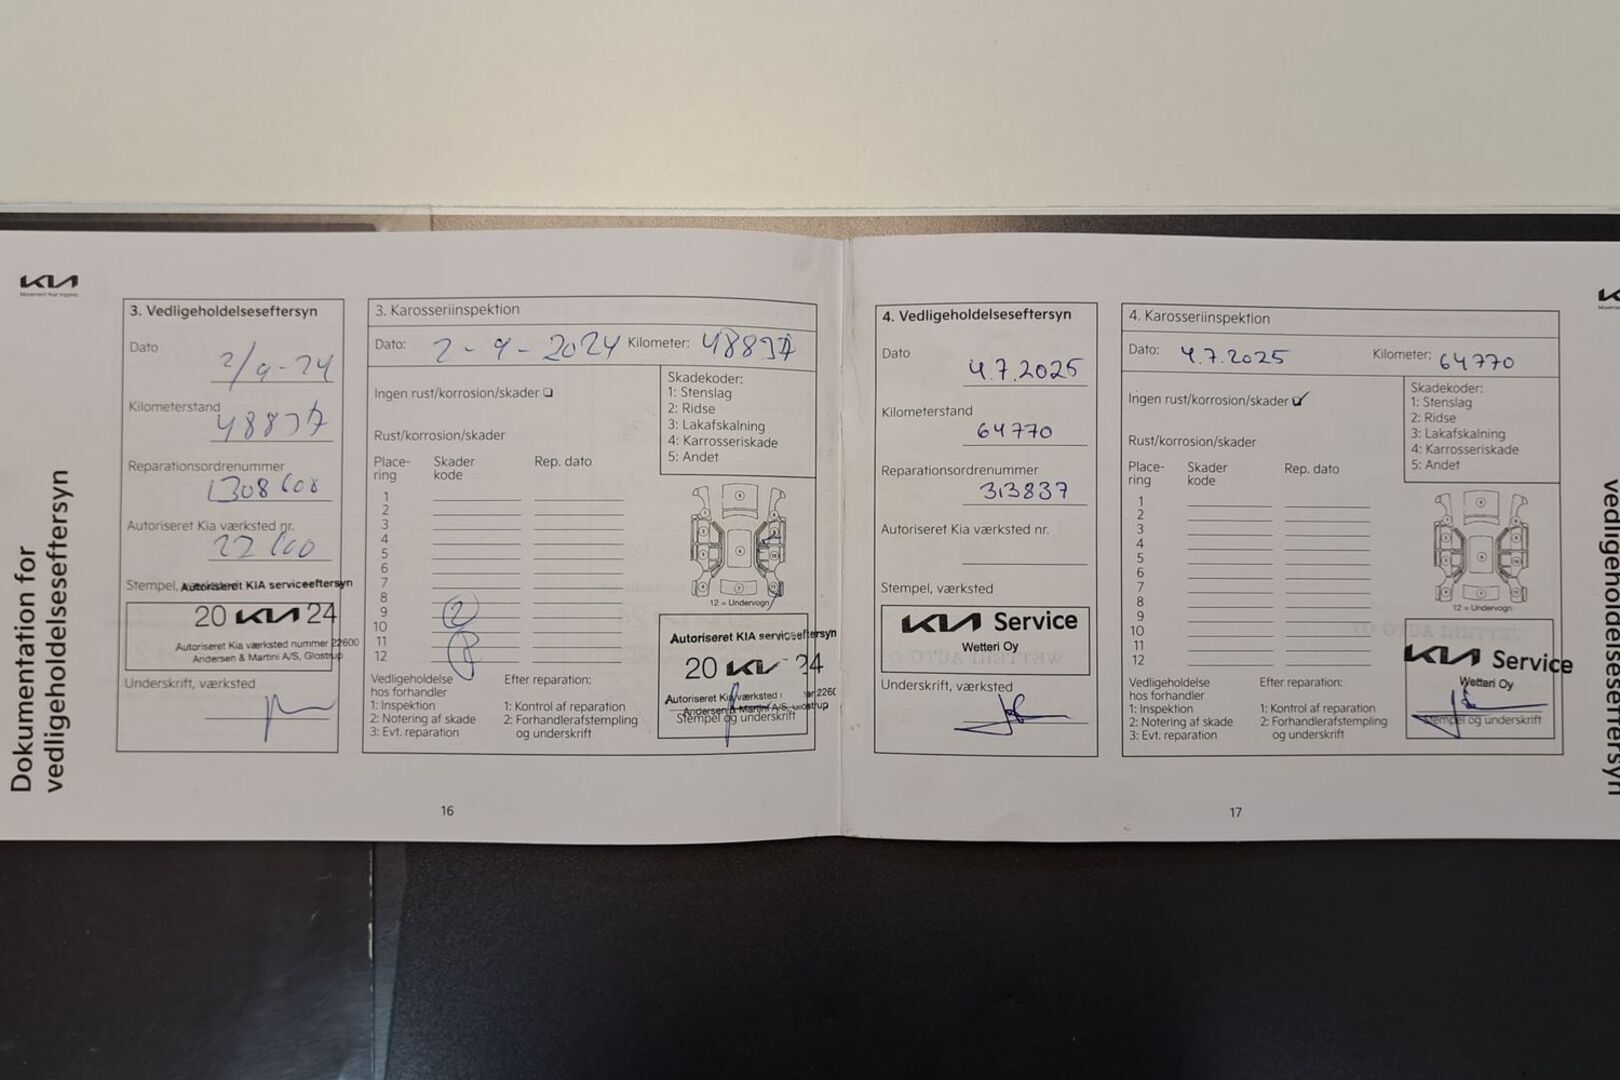 KIA
Movement that inspires
Dokumentation for
vedligeholdelseseftersyn
3. Vedligeholdelseseftersyn
Dato
2/9-24
Kilometerstand
Reparationsordrenummer
1308608
Autoriseret Kia værksted nr.
22600
Stempel,
Autoriseret KIA serviceeftersyn
20 KIA 24
Autoriseret Kia værksted nummer 22600
Andersen & Martini A/S, Glostrup
Underskrift, værksted
3. Karosseriinspektion
Dato: 2-9-2024 Kilometer:
Ingen rust/korrosion/skader
Rust/korrosion/skader
Place-
ring
Skader
kode
Rep. dato
1
2
3
4
5
6
7
8
9
10
11
12
2
Skadekoder:
1: Stenslag
2: Ridse
3: Lakafskalning
4: Karrosseriskade
5: Andet
12 = Undervogn
Vedligeholdelse
hos forhandler
1: Inspektion
2: Notering af skade
3: Evt. reparation
Efter reparation:
1: Kontrol af reparation
2: Forhandlerafstempling
og underskrift
Autoriseret KIA serviceeftersyn
20 KIA 24
Autoriseret Kia værksted
Andersen & Martini A/S, Glostrup
Stempel og underskrift
16
4. Vedligeholdelseseftersyn
Dato
4.7.2025
Kilometerstand
64770
Reparationsordrenummer
313837
Autoriseret Kia værksted nr.
Stempel, værksted
KIA Service
Wetteri Oy
Underskrift, værksted
4. Karosseriinspektion
Dato: 4.7.2025 Kilometer: 64770
Ingen rust/korrosion/skader
Rust/korrosion/skader
Place-
ring
Skader
kode
Rep. dato
1
2
3
4
5
6
7
8
9
10
11
12
Skadekoder:
1: Stenslag
2: Ridse
3: Lakafskalning
4: Karrosseriskade
5: Andet
12 = Undervogn
Vedligeholdelse
hos forhandler
1: Inspektion
2: Notering af skade
3: Evt. reparation
Efter reparation:
1: Kontrol af reparation
2: Forhandlerafstempling
og underskrift
KIA Service
Wetteri Oy
Stempel og underskrift
17
vedligeholdelseseftersyn